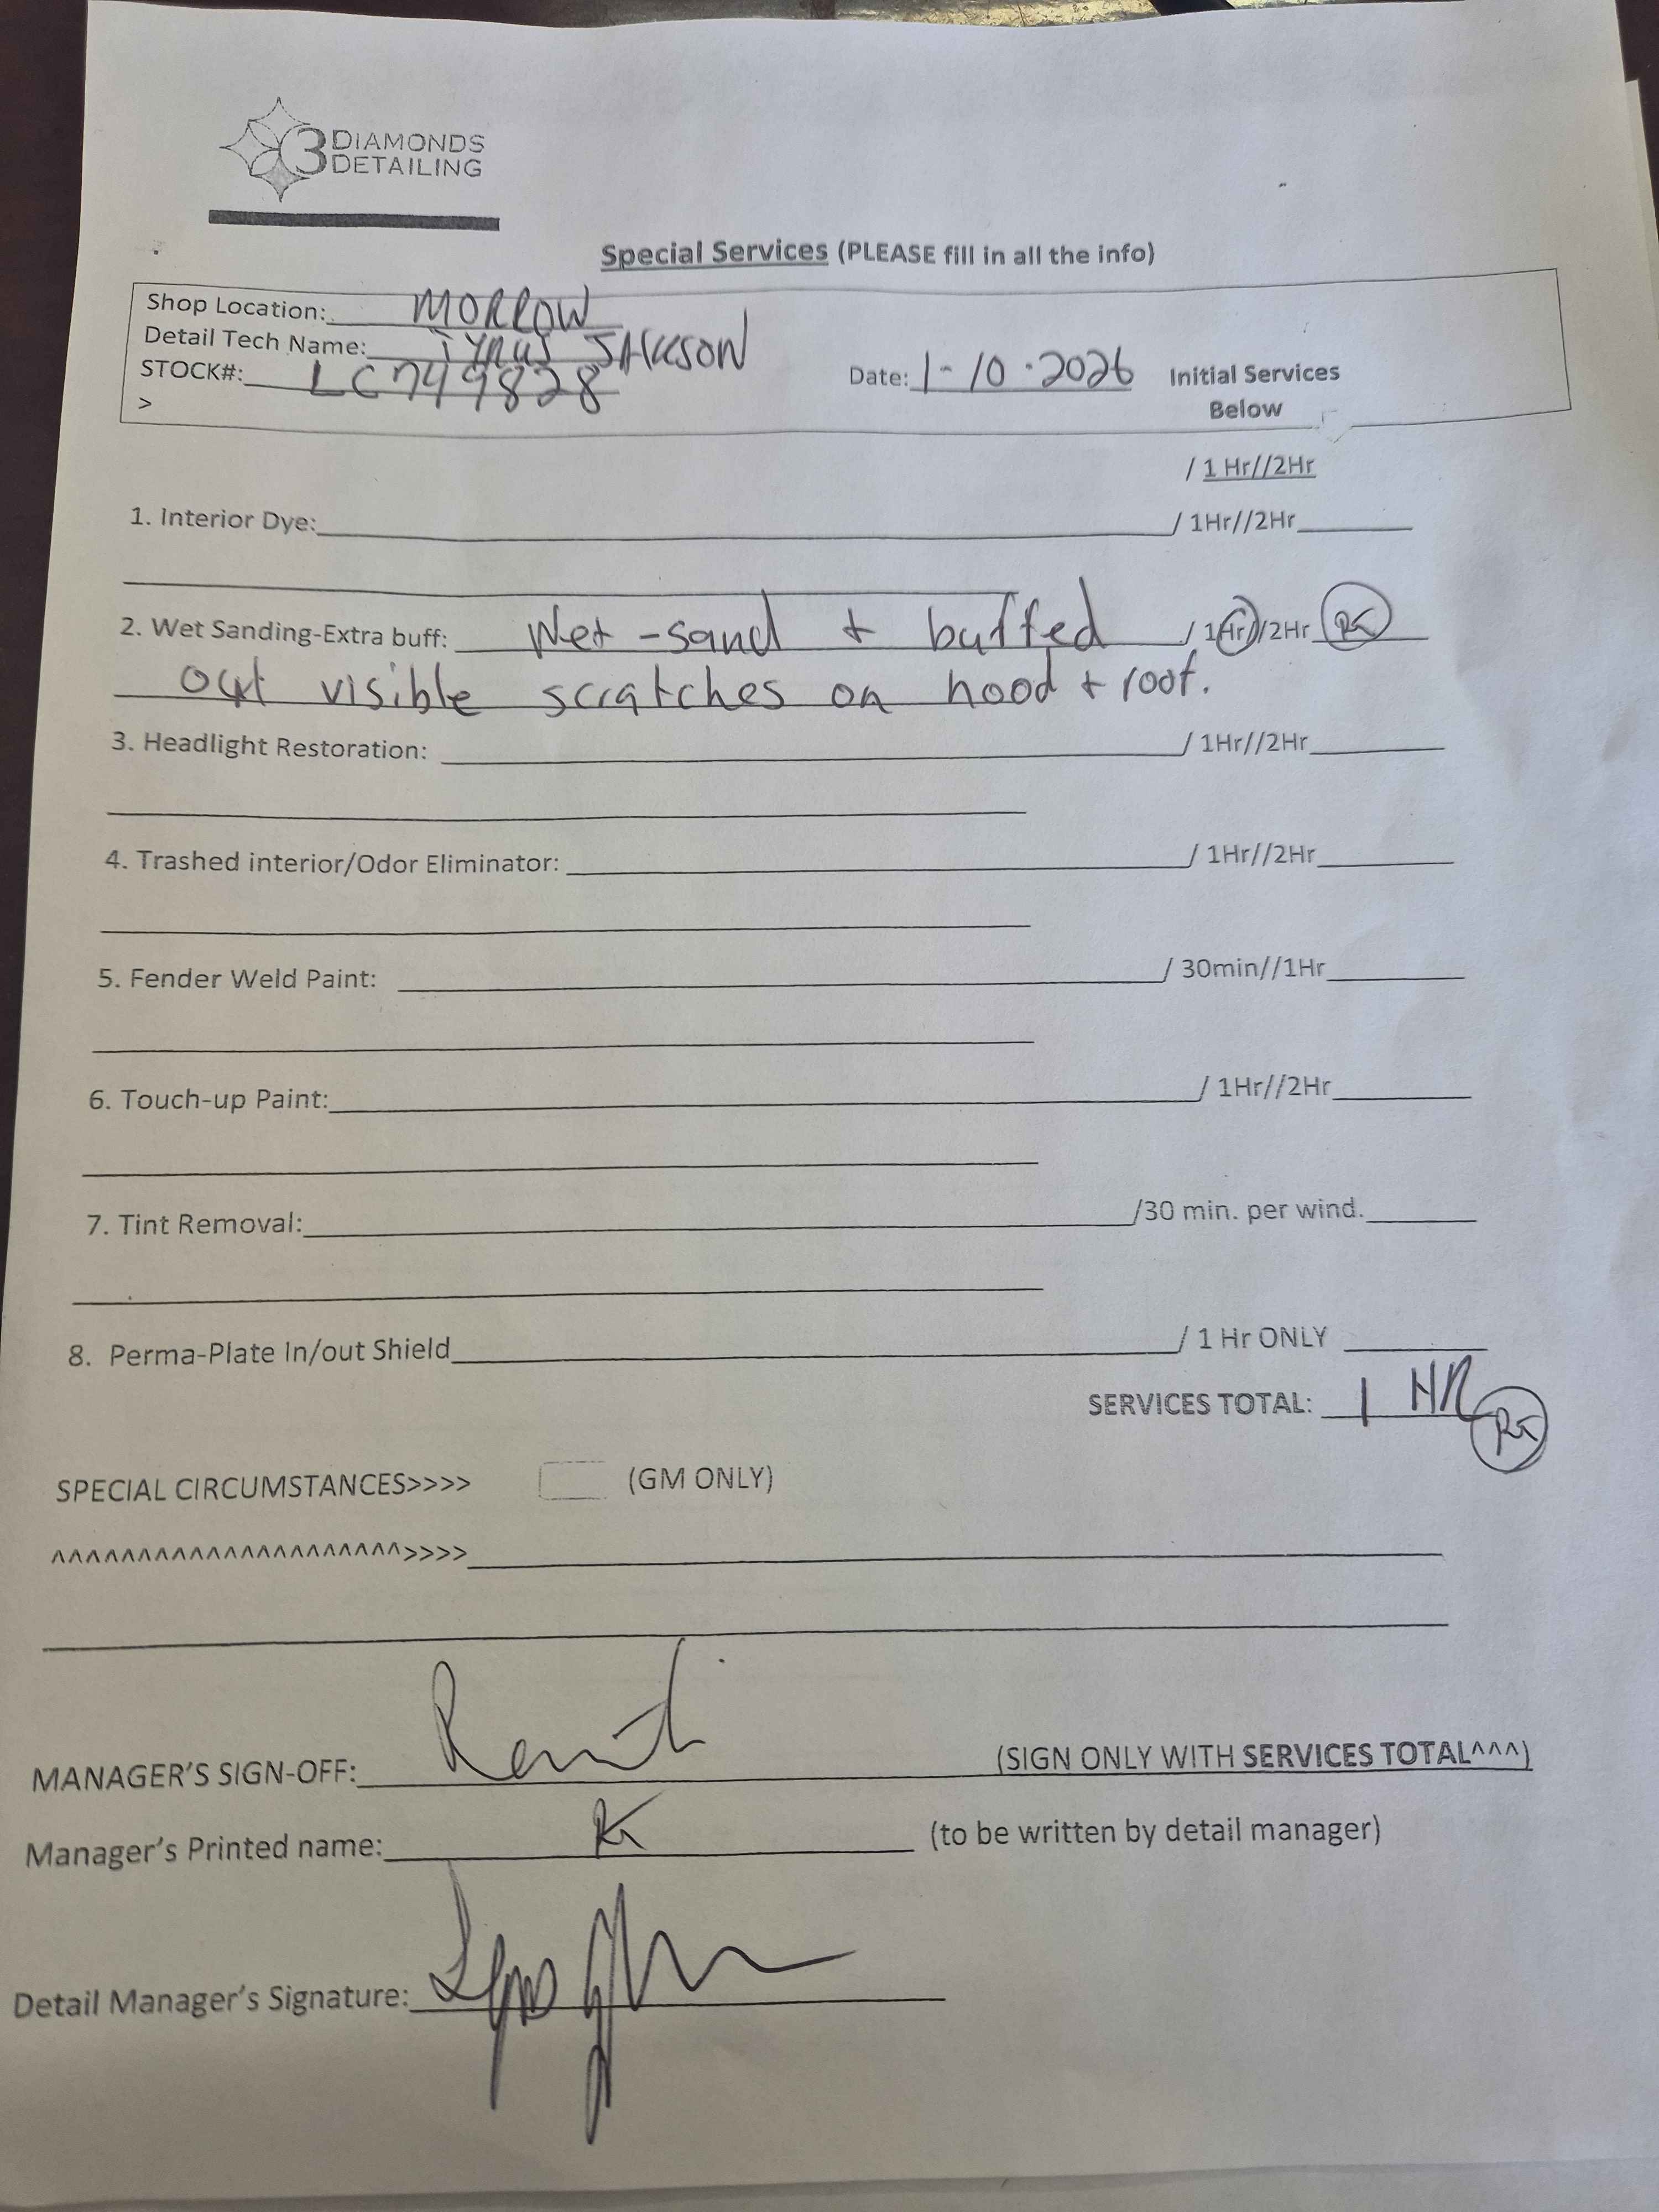 3 DIAMONDS
DETAILING
Special Services (PLEASE fill in all the info)
Shop Location: MORROW
Detail Tech Name: Tyrus JACKSON
STOCK#: LC749828 Date: 1-10.2026 Initial Services
> Below
/ 1 Hr//2Hr
1. Interior Dye: / 1Hr//2Hr
2. Wet Sanding-Extra buff: Wet-sand + buffed / 1Hr//2Hr
out visible scratches on hood + roof.
3. Headlight Restoration: / 1Hr//2Hr
4. Trashed interior/Odor Eliminator: / 1Hr//2Hr
5. Fender Weld Paint: / 30min//1Hr
6. Touch-up Paint: / 1Hr//2Hr
7. Tint Removal: /30 min. per wind.
8. Perma-Plate In/out Shield / 1 Hr ONLY
SERVICES TOTAL: 1 HR
SPECIAL CIRCUMSTANCES>>>> (GM ONLY)
^^^^^^^^^^^^^^^^^^^^^>>>>
MANAGER'S SIGN-OFF: (SIGN ONLY WITH SERVICES TOTAL^^^)
Manager's Printed name: (to be written by detail manager)
Detail Manager's Signature: